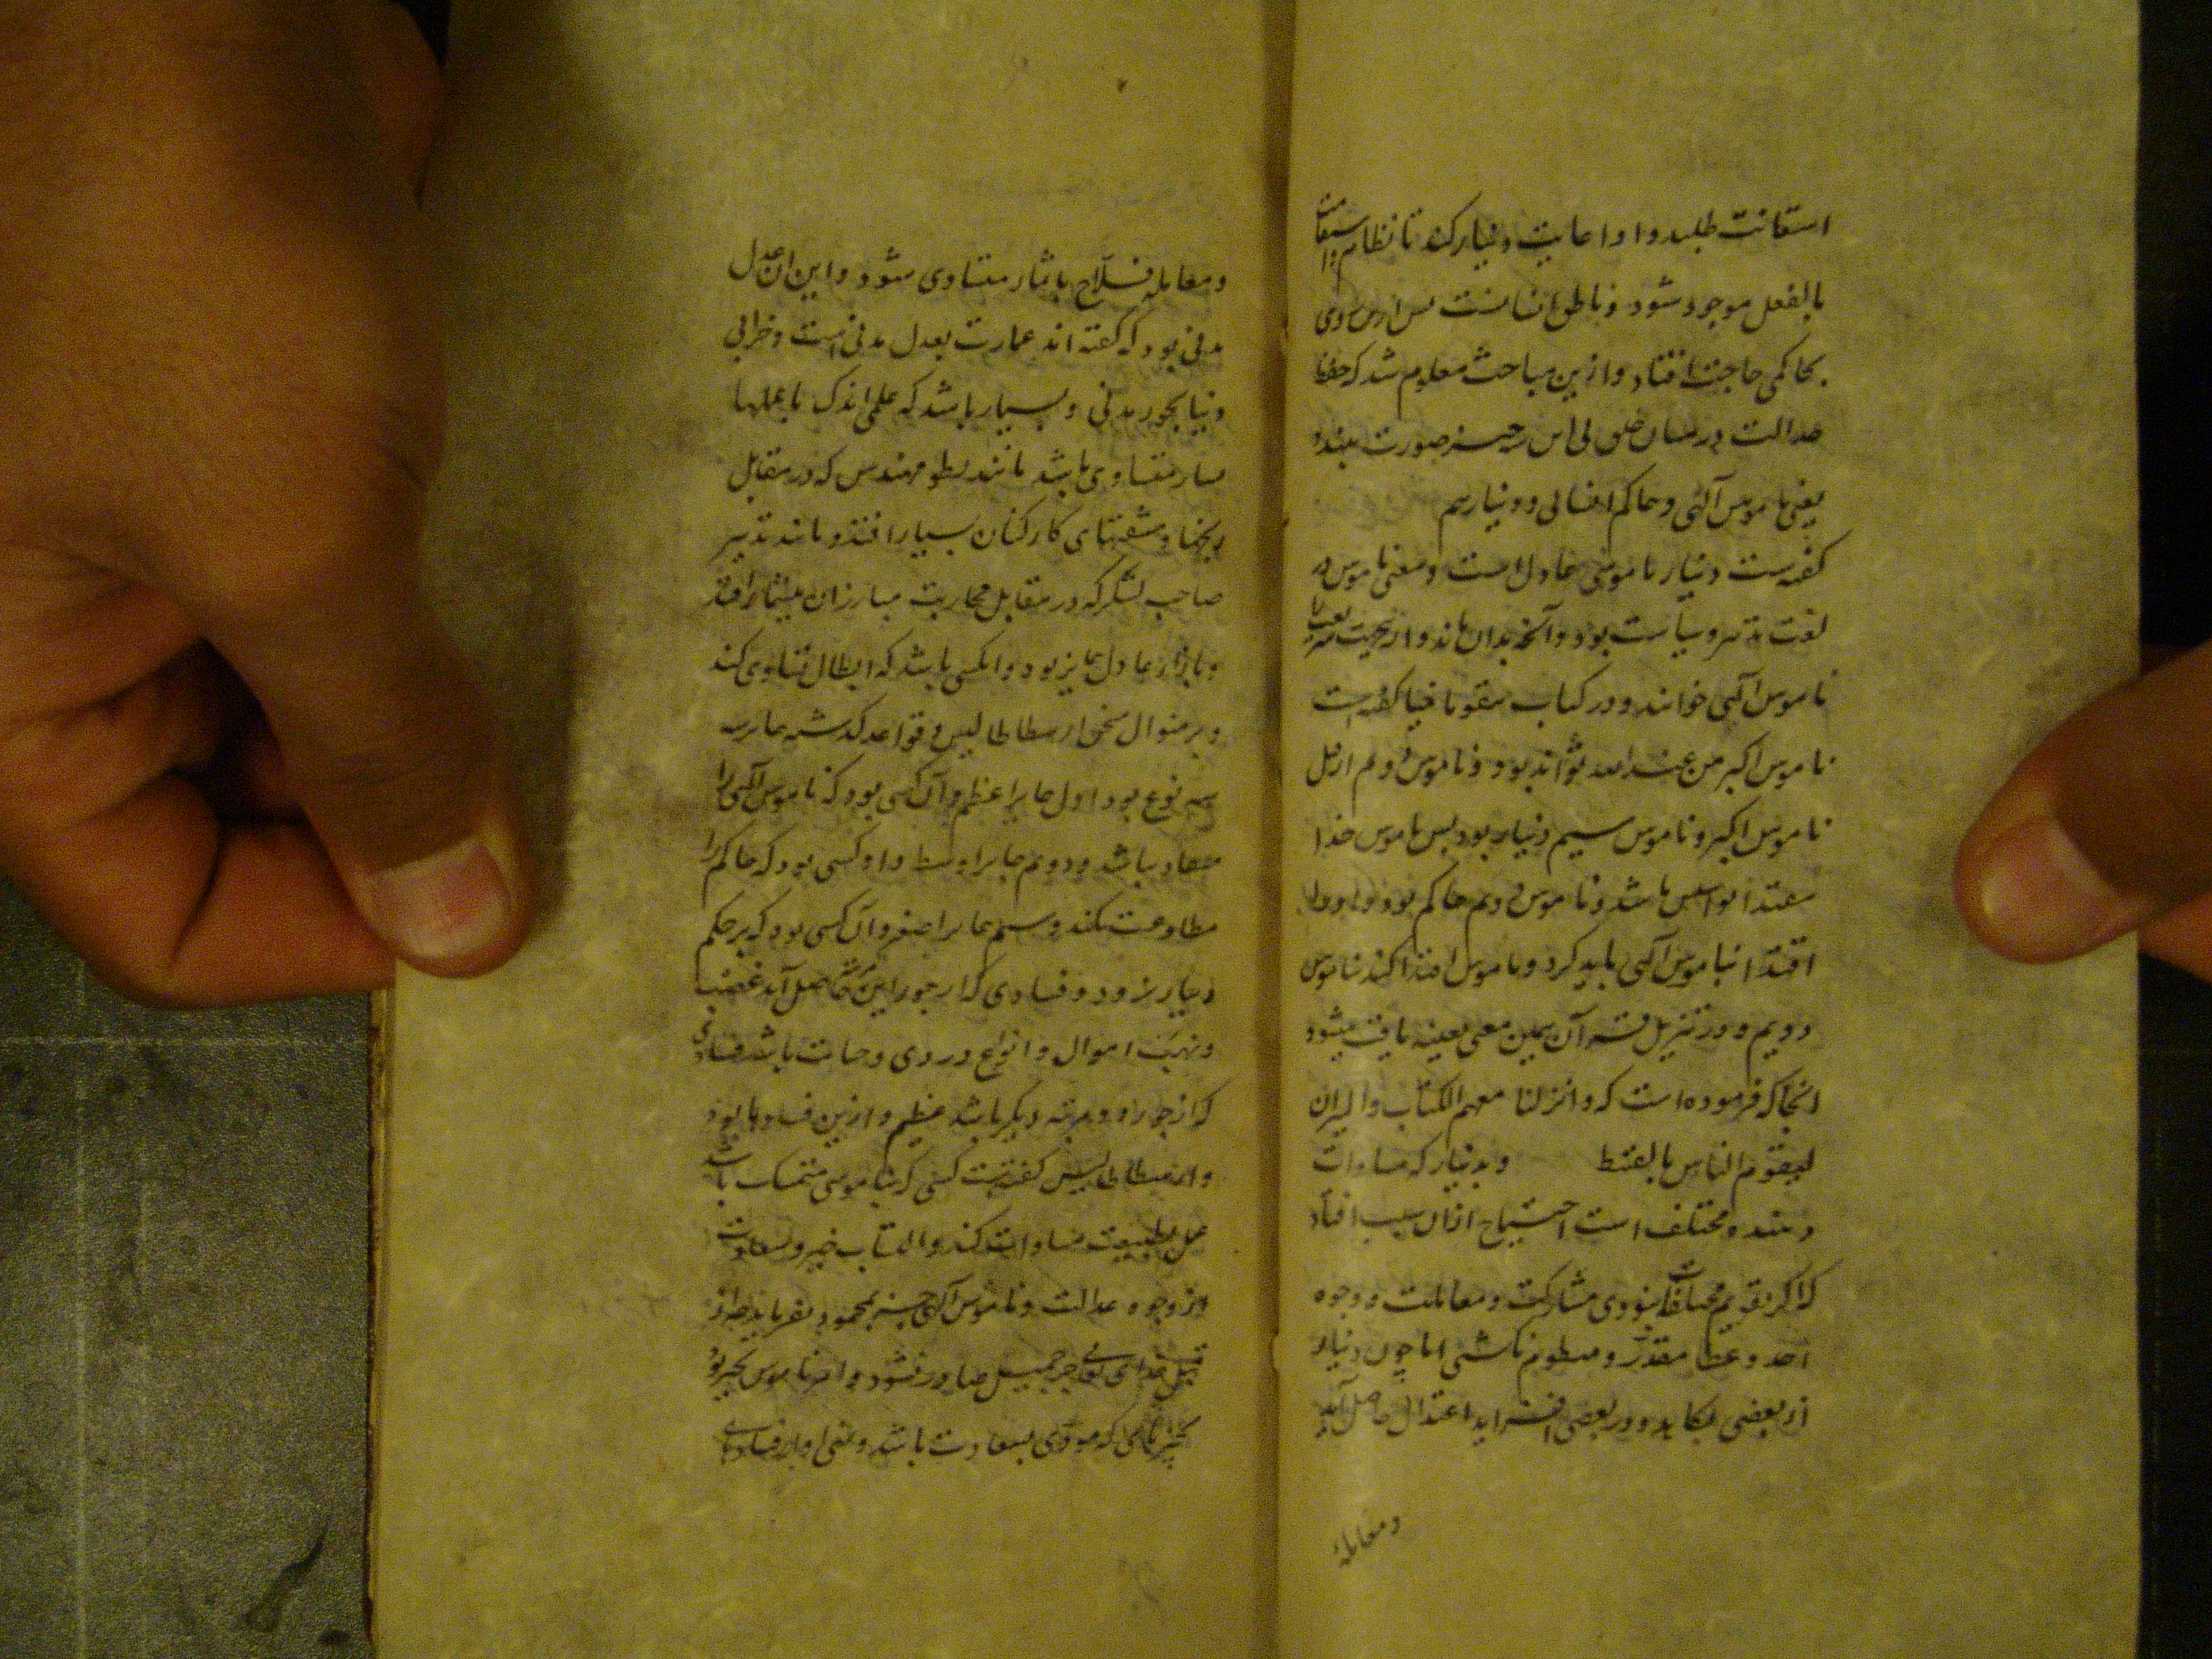 استعانت طلبد و او اعانت دینار کند تا نظام و استقامت
بالفعل موجود شود و ناطق انسانست پس ازین روی
بحاکمی حاجت افتاد و ازین مباحث معلوم شد که حفظ
عدالت در میان خلق بی این سه چیز صورت نبندد
یعنی ناموس آلهی و حاکم انسانی و دینار هم
گفته‌ست دینار ناموسی عادل است و معنی ناموس در
لغت تدبیر و سیاست بود و آنچه بدان ماند و ازینجهت شریعت را
ناموس آلهی خوانند و در کتاب نیقوماخیا گفته است
ناموس اکبر من عند الله تواند بود و ناموس دوم از قبل
ناموس اکبر و ناموس سیم دینار بود پس ناموس خدا
مقتدا نوامیس باشد و ناموس دوم حاکم بود و او را
اقتدا بناموس آلهی باید کرد و ناموس اقتدا کند بناموس
دویم و در تنزیل قرآن همین معنی بعینه یافت میشود
آنجا که فرموده است که و انزلنا معهم الکتاب والمیزان
لیقوم الناس بالقسط و بدینار که مساوات
دهنده مختلف است احتیاج ازان سبب افتاد
که اگر تقویم مختلفات نبودی مشارکت و معاملت و وجوه
اخذ و عطا مقدر و منظوم نگشتی اما چون دینار
از بعضی بکاهد و در بعضی افزاید اعتدال حاصل آید
و معامله
و معامله فلاح با نجار متساوی شود و این آن عدل
مدنی بود که گفته اند عمارت بعدل مدنی است و خرابی
دنیا بجور مدنی و بسیار باشد که عملی اندک با عملها
بسیار متساوی باشد مانند نظر مهندس که در مقابل
رنجها و مشقتهای کارکنان بسیار افتد و مانند تدبیر
صاحب لشکر که در مقابل محاربت مبارزان بیشمار افتد
و بازاء عادل جایر بود و آن کسی باشد که ابطال تساوی کند
و بر منوال سخن ارسطاطالیس و قواعد گذشته جایر سه
نوع بود اول جایر اعظم و آن کسی بود که ناموس آلهی را
منقاد نباشد و دویم جایر اوسط و او کسی بود که حاکم را
مطاوعت نکند و سیم جایر اصغر و آن کسی بود که بر حکم
دینار نرود و فسادی که از جور این حاصل آید غصب
و نهب اموال و انواع دزدی و خیانت باشد و فسادی
که از جور دو مرتبه دیگر باشد عظیم‌تر ازین فسادها بود
و ارسطاطالیس گفته‌ست کسی که بناموس متمسک باشد
عمل بطبیعت مساوات کند و اکتساب خیر و سعادت
از وجوه عدالت و ناموس آلهی جز بمحمود نفرماید چه از
قبل خدای تعالی جز جمیل صادر نشود و امر ناموس بخیر بود
بچیزهایی که مودی بسعادت باشد و نهی او از فسادهای